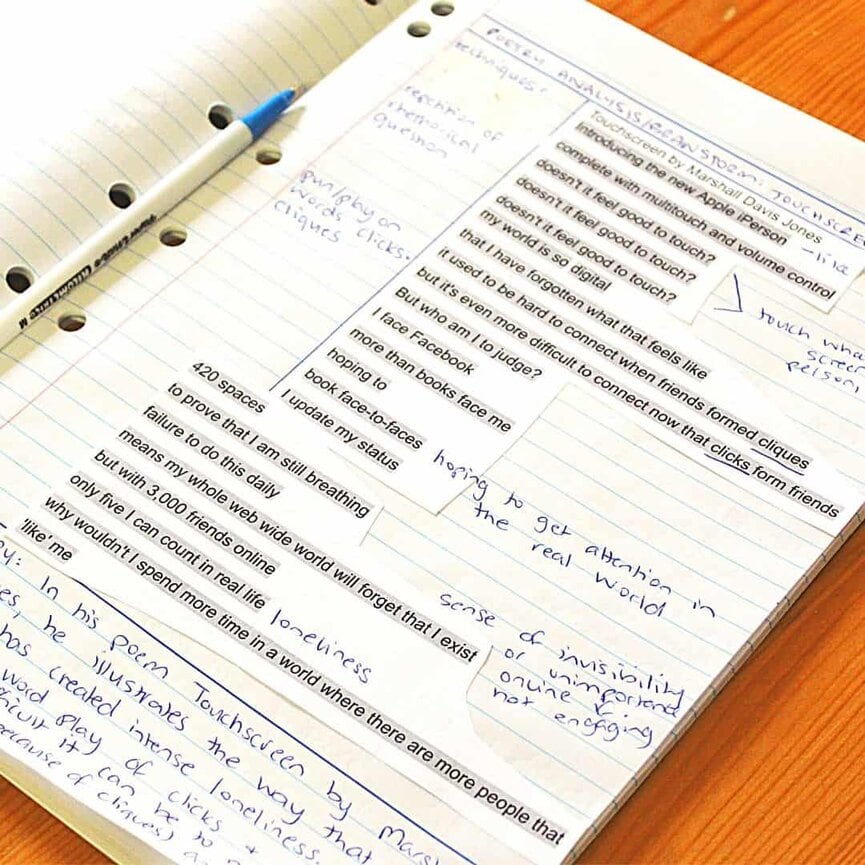 POETRY ANALYSIS/BRAINSTORM: TOUCHSCREE
techniques:
repetition of
rhetorical
question
pun/play on
words clicks.
cliques
Touchscreen by Marshall Davis Jones
Introducing the new Apple iPerson
complete with multitouch and volume control
doesn't it feel good to touch?
doesn't it feel good to touch?
doesn't it feel good to touch?
my world is so digital
that I have forgotten what that feels like
it used to be hard to connect when friends formed cliques
but it's even more difficult to connect now that clicks form friends
But who am I to judge?
I face Facebook
more than books face me
hoping to
book face-to-faces
I update my status
- like
touch wha
screen
person
hoping to get attention in
the real world
420 spaces
to prove that I am still breathing
failure to do this daily
means my whole web wide world will forget that I exist
but with 3,000 friends online
only five I can count in real life
why wouldn't I spend more time in a world where there are more people that
'like' me
loneliness
sense of invisibility
or unimportance
online if
not engaging
In his poem Touchscreen by Mars
he illustrates the way that
has created intense loneliness.
word play of clicks +
it can be to
because of cliques)